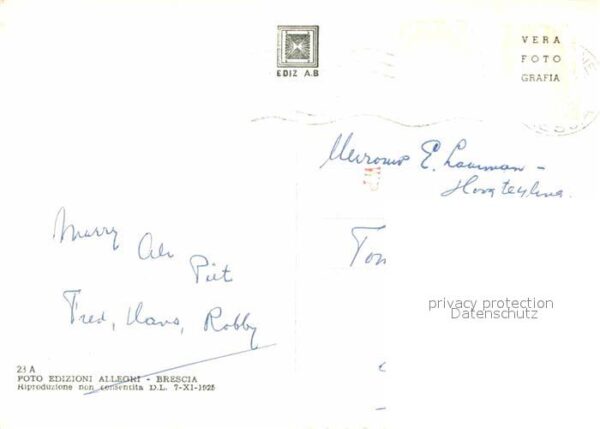 EDIZ A.B
VERA
FOTO
GRAFIA
Mevrouw E. Lauman -
Ton
Marry Ali
Piet
Fred, Hans, Robby
privacy protection
Datenschutz
23 A
FOTO EDIZIONI ALLEGRI - BRESCIA
Riproduzione non consentita D.L. 7-XI-1925